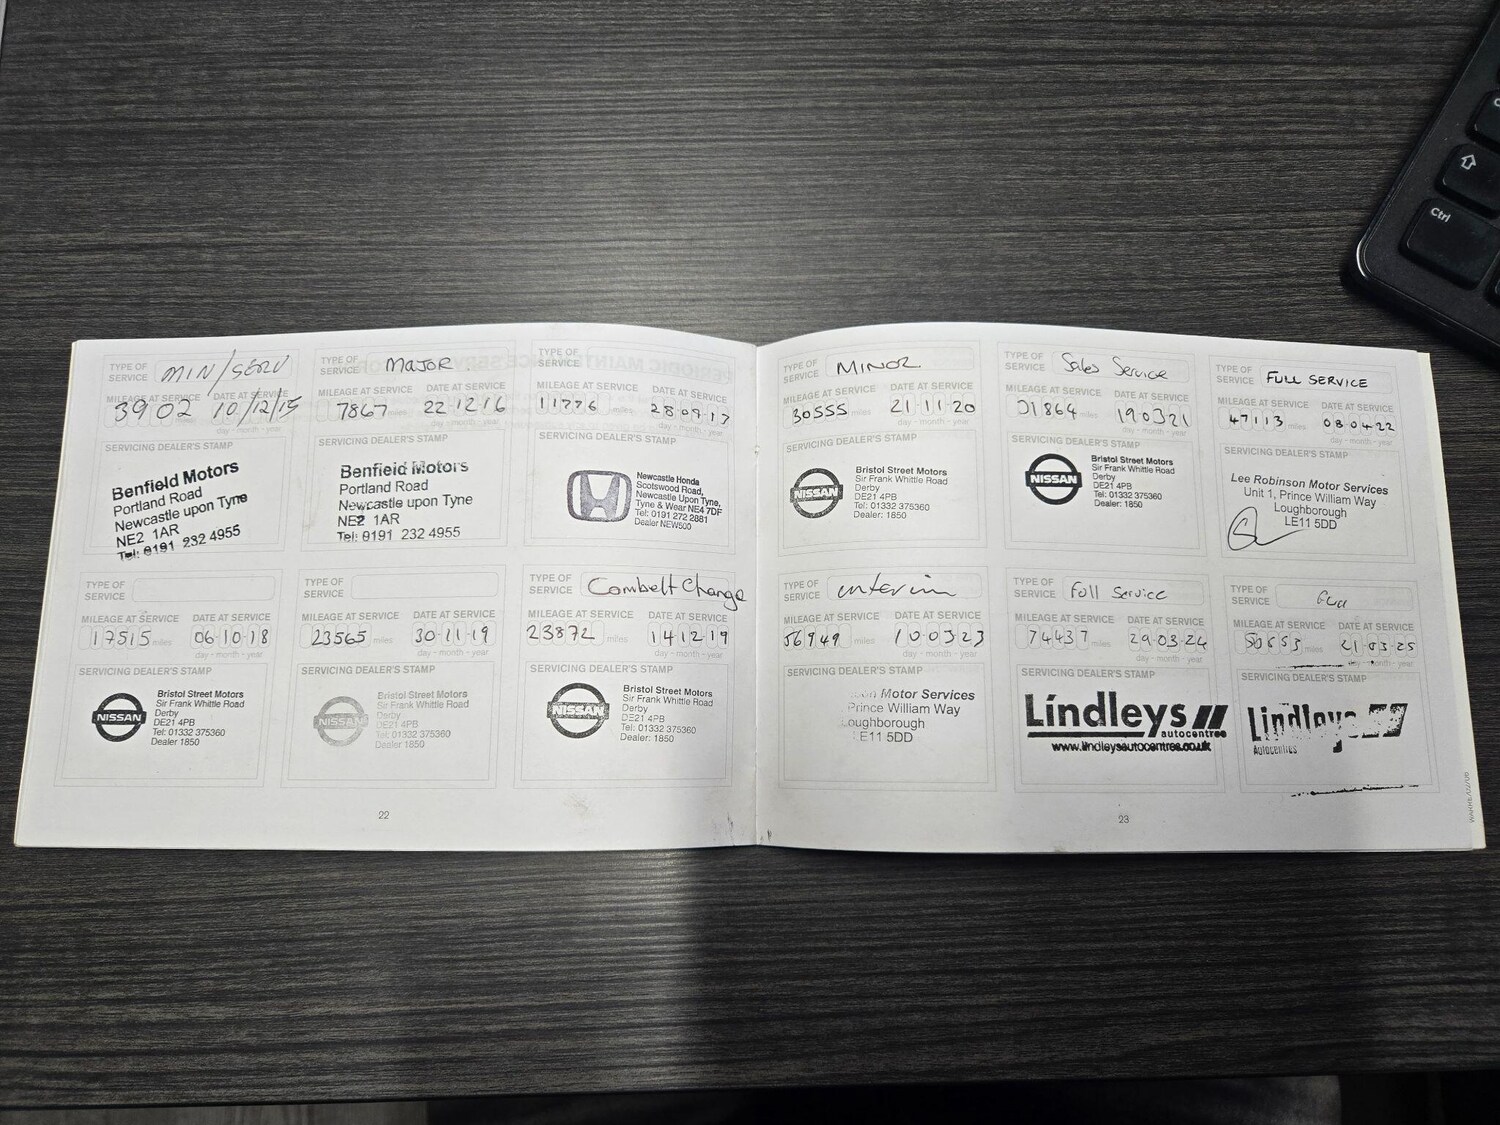 TYPE OF SERVICE MIN/SERV
MILEAGE AT SERVICE DATE AT SERVICE
3902 10/12/15
SERVICING DEALER'S STAMP
Benfield Motors
Portland Road
Newcastle upon Tyne
NE2 1AR
Tel: 0191 232 4955
TYPE OF SERVICE MAJOR
MILEAGE AT SERVICE DATE AT SERVICE
7867 miles 22 12 16
day - month - year
SERVICING DEALER'S STAMP
Benfield Motors
Portland Road
Newcastle upon Tyne
NE2 1AR
Tel: 0191 232 4955
TYPE OF SERVICE
MILEAGE AT SERVICE DATE AT SERVICE
11776 miles 28-09-17
day - month - year
SERVICING DEALER'S STAMP
Newcastle Honda
Scotswood Road,
Newcastle Upon Tyne,
Tyne & Wear NE4 7DF
Tel: 0191 272 2881
Dealer NEW500
TYPE OF SERVICE
MILEAGE AT SERVICE DATE AT SERVICE
17515 miles 06-10-18
day - month - year
SERVICING DEALER'S STAMP
NISSAN
Bristol Street Motors
Sir Frank Whittle Road
Derby
DE21 4PB
Tel: 01332 375360
Dealer 1850
TYPE OF SERVICE
MILEAGE AT SERVICE DATE AT SERVICE
23565 miles 30-11-19
day - month - year
SERVICING DEALER'S STAMP
NISSAN
Bristol Street Motors
Sir Frank Whittle Road
Derby
DE21 4PB
Tel: 01332 375360
Dealer: 1850
TYPE OF SERVICE Cambelt Change
MILEAGE AT SERVICE DATE AT SERVICE
23872 miles 14 12 19
day - month - year
SERVICING DEALER'S STAMP
NISSAN
Bristol Street Motors
Sir Frank Whittle Road
Derby
DE21 4PB
Tel: 01332 375360
Dealer: 1850
22
TYPE OF SERVICE MINOR
MILEAGE AT SERVICE DATE AT SERVICE
30555 miles 21-11-20
day - month - year
SERVICING DEALER'S STAMP
NISSAN
Bristol Street Motors
Sir Frank Whittle Road
Derby
DE21 4PB
Tel: 01332 375360
Dealer: 1850
TYPE OF SERVICE Sales Service
MILEAGE AT SERVICE DATE AT SERVICE
31864 miles 190321
day - month - year
SERVICING DEALER'S STAMP
NISSAN
Bristol Street Motors
Sir Frank Whittle Road
Derby
DE21 4PB
Tel: 01332 375360
Dealer: 1850
TYPE OF SERVICE FULL SERVICE
MILEAGE AT SERVICE DATE AT SERVICE
47113 miles 08.04.22
day - month - year
SERVICING DEALER'S STAMP
Lee Robinson Motor Services
Unit 1, Prince William Way
Loughborough
LE11 5DD
TYPE OF SERVICE interim
MILEAGE AT SERVICE DATE AT SERVICE
56949 miles 10-03-23
day - month - year
SERVICING DEALER'S STAMP
Motor Services
Prince William Way
Loughborough
LE11 5DD
TYPE OF SERVICE Full Service
MILEAGE AT SERVICE DATE AT SERVICE
74437 miles 29.03.24
day - month - year
SERVICING DEALER'S STAMP
Lindleys
autocentres
www.lindleysautocentres.co.uk
TYPE OF SERVICE
MILEAGE AT SERVICE DATE AT SERVICE
miles 21-03-25
day - month - year
SERVICING DEALER'S STAMP
Lindleys
Autocentres
23
Ctrl